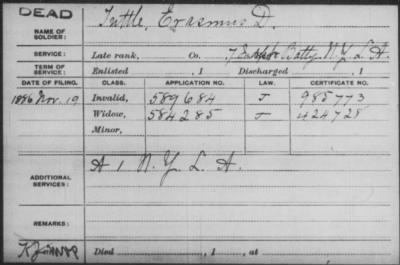 DEAD
NAME OF SOLDIER: Tuttle, Erasmus D.
SERVICE: Late rank, Co. 7 Batty. N.Y. L.A.
TERM OF SERVICE: Enlisted , 1 Discharged , 1
DATE OF FILING. CLASS. APPLICATION NO. LAW. CERTIFICATE NO.
1886 Nov. 19 Invalid, 589684 J 985773
Widow, 584285 J 424728
Minor,
ADDITIONAL SERVICES: A 1 N.Y. L.A.
REMARKS:
Died , 1 , at